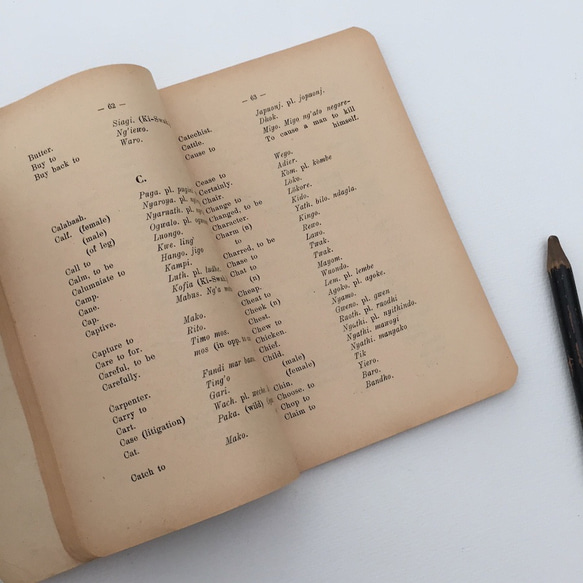 — 62 —
Butter. Siagi. (Ki-Swa
Buy to Ng'iewo.
Buy back to Waro.
C.
Calabash. Puga. pl.
Calf. (female) Nyaroya. pl.
(male) Nyaruath. pl.
(of leg) Ogwalo. pl.
Call to Luongo.
Calm, to be Kwe. ling'
Calumniate to Hango. jigo
Camp. Kampi.
Cane. Luth. pl. ludhe.
Cap. Kofia (Ki-Swa
Captive. Mabus. Ng'a
Capture to Mako.
Care to for. Rito.
Careful, to be Timo mos.
Carefully. mos (in opp.
Carpenter. Fundi mar bao.
Carry to Ting'o
Cart. Gari.
Case (litigation) Wach. pl.
Cat. Paka. (wild)
Catch to Mako.
— 63 —
Catechist. Japuonj. pl. jopuonj.
Cattle. Dhok.
Cause to Miyo. Miyo ng'ato negore—
To cause a man to kill
himself.
Cease to Wego.
Certainly. Adier.
Chair. Kom. pl. kombe
Change to Loko.
Changed, to be Lokore.
Character. Kido.
Charm (n) Yath. bilo. ndagla.
to Kingo.
Charred, to be Rewo.
Chase to Lawo.
Chat to Twak.
(n) Twak.
Cheap. Mayom.
Cheat to Wuondo.
Cheek (n) Lem. pl. lembe
Chest. Agoko. pl. agoke.
Chew to Nyamo.
Chicken. Gweno. pl. gwen
Chief. Ruoth. pl. ruodhi
Child. Nyathi. pl. nyithindo.
(male) Nyathi mawuoyi
(female) Nyathi manyako
Chin. Tik
Choose to Yiero.
Chop to Baro.
Claim to Bandho.